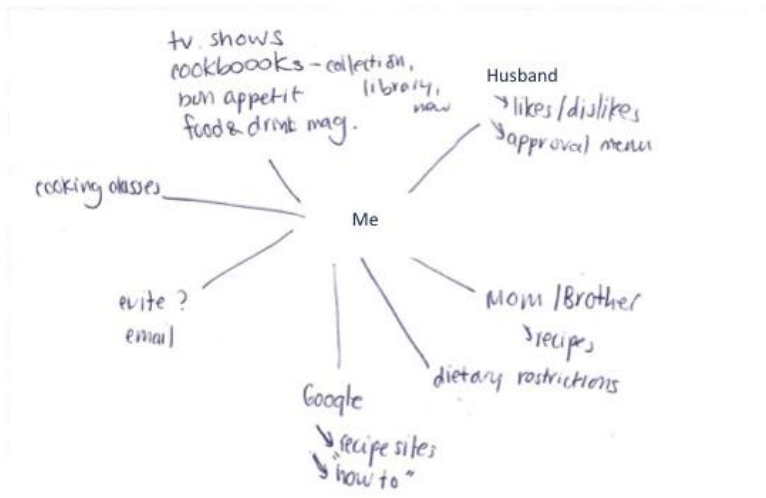 tv. shows
cookboooks - collection,
library,
new
bon appetit
food & drink mag.
Husband
likes/dislikes
approval menu
cooking classes
Me
evite ?
email
Mom /Brother
recipes
dietary restrictions
Google
recipe sites
"how to"